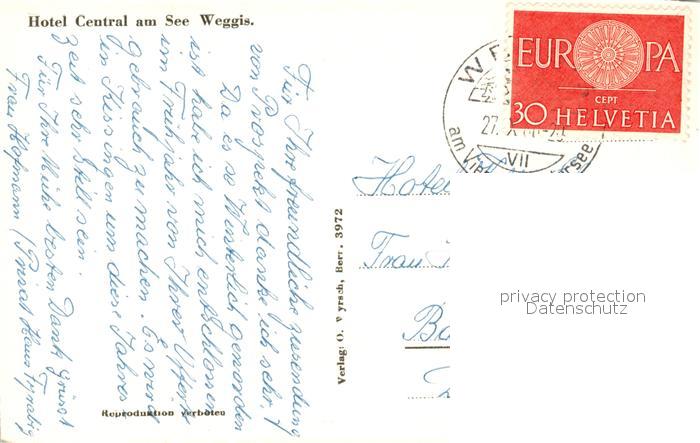 Hotel Central am See Weggis.
Für Ihre freundliche zusendung
von Prospekt danke ich sehr.
Da es so Winterlich geworden
ist hab ich mich entschlomen
im Frühjahr von Ihrer Offert
gebrauch zu machen. Es wird
in Kissingen um diese Jahres
zeit sehr still sein.
Für Ihre Mühe besten Dank grüsst
Frau Hofmann / Privat Haus
Reproduktion verboten
Verlag: O. Wyrsch, Bern. 3972
EUROPA
CEPT
30 HELVETIA
27. X
VII
am Vier
ersee
Hotel
Frau
Ba
privacy protection
Datenschutz